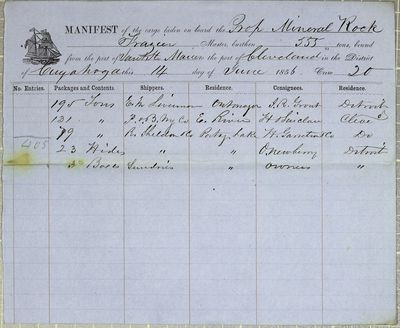 MANIFEST of the cargo laden on board the Prop Mineral Rock
Frazier Master, burthen 555 tons, bound
from the port of Saut Ste Marie to the port of Cleveland in the District
of Cuyahoga this 14 day of June 1866 Crew 20
No. Entries. Packages and Contents. Shippers. Residence. Consignees. Residence.
195 Tons Ontonagon J.R. Grout Detroit
121 " E. River H Cleve d
79 " R. Sheldon & Co Portage Lake W. Do
405
23 Hides " " Newberry Detroit
3 Boxes Sundries " owners "